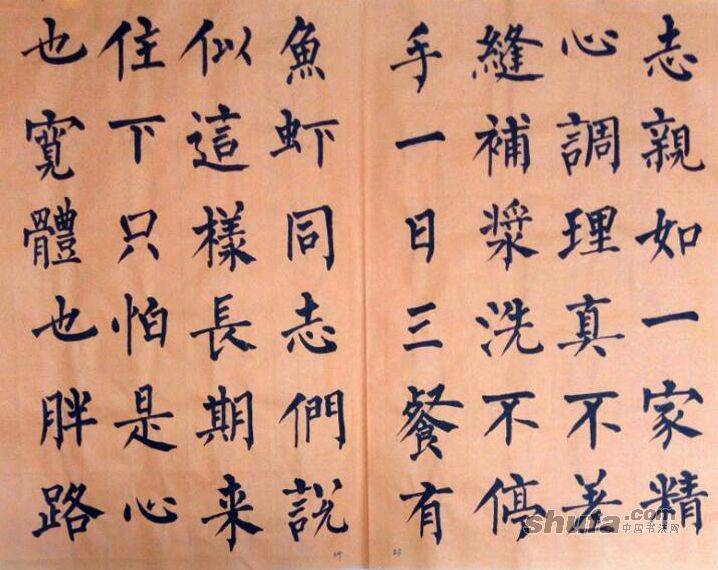 志親如一家精
心調理真不差
縫補漿洗不停
手一日三餐有
魚虾同志們說
似這樣長期来
住下只怕是心
也寬體也胖路
23
24
Shufa.com
中国书法网